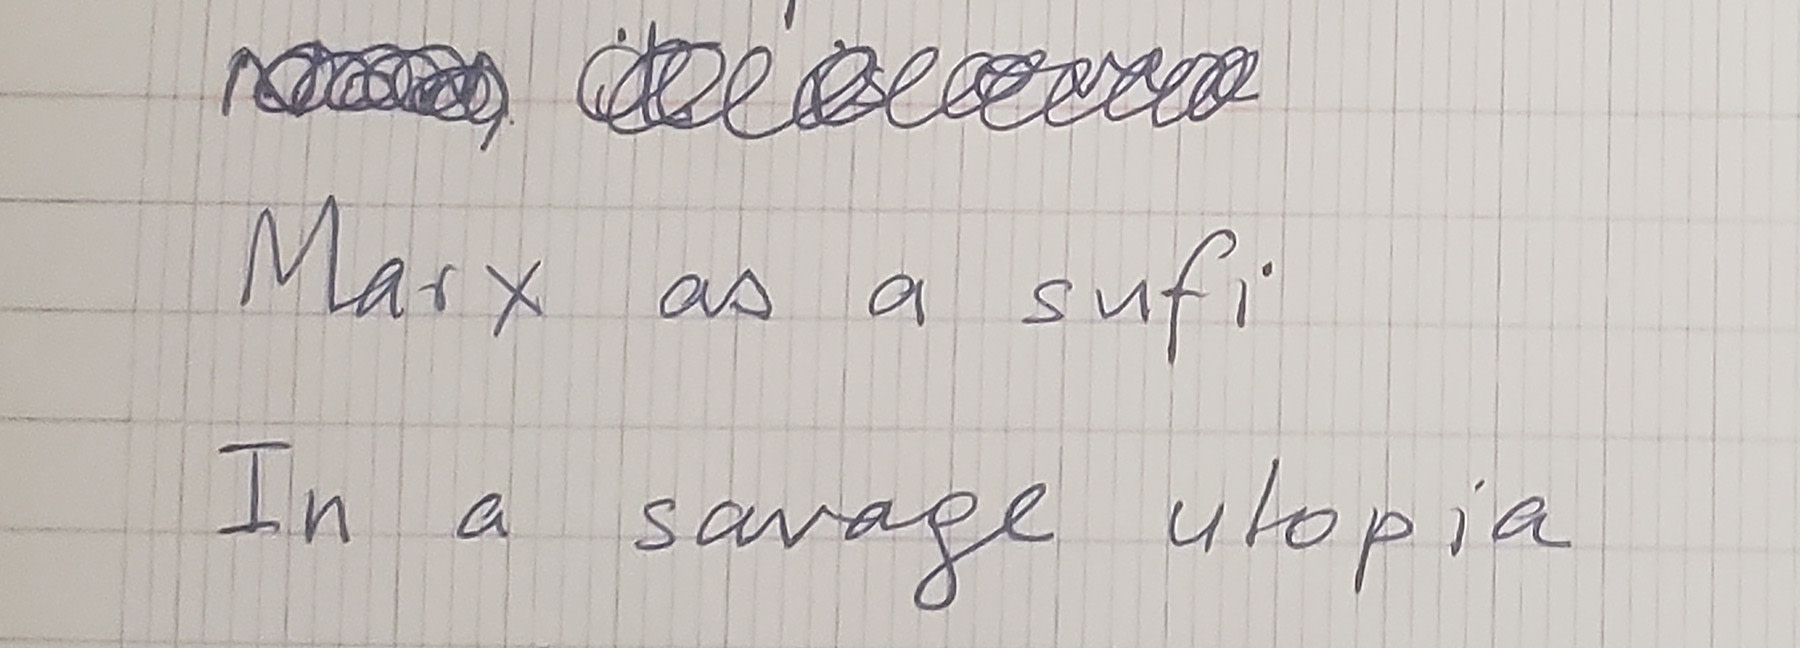 Marx as a sufi
In a savage utopia